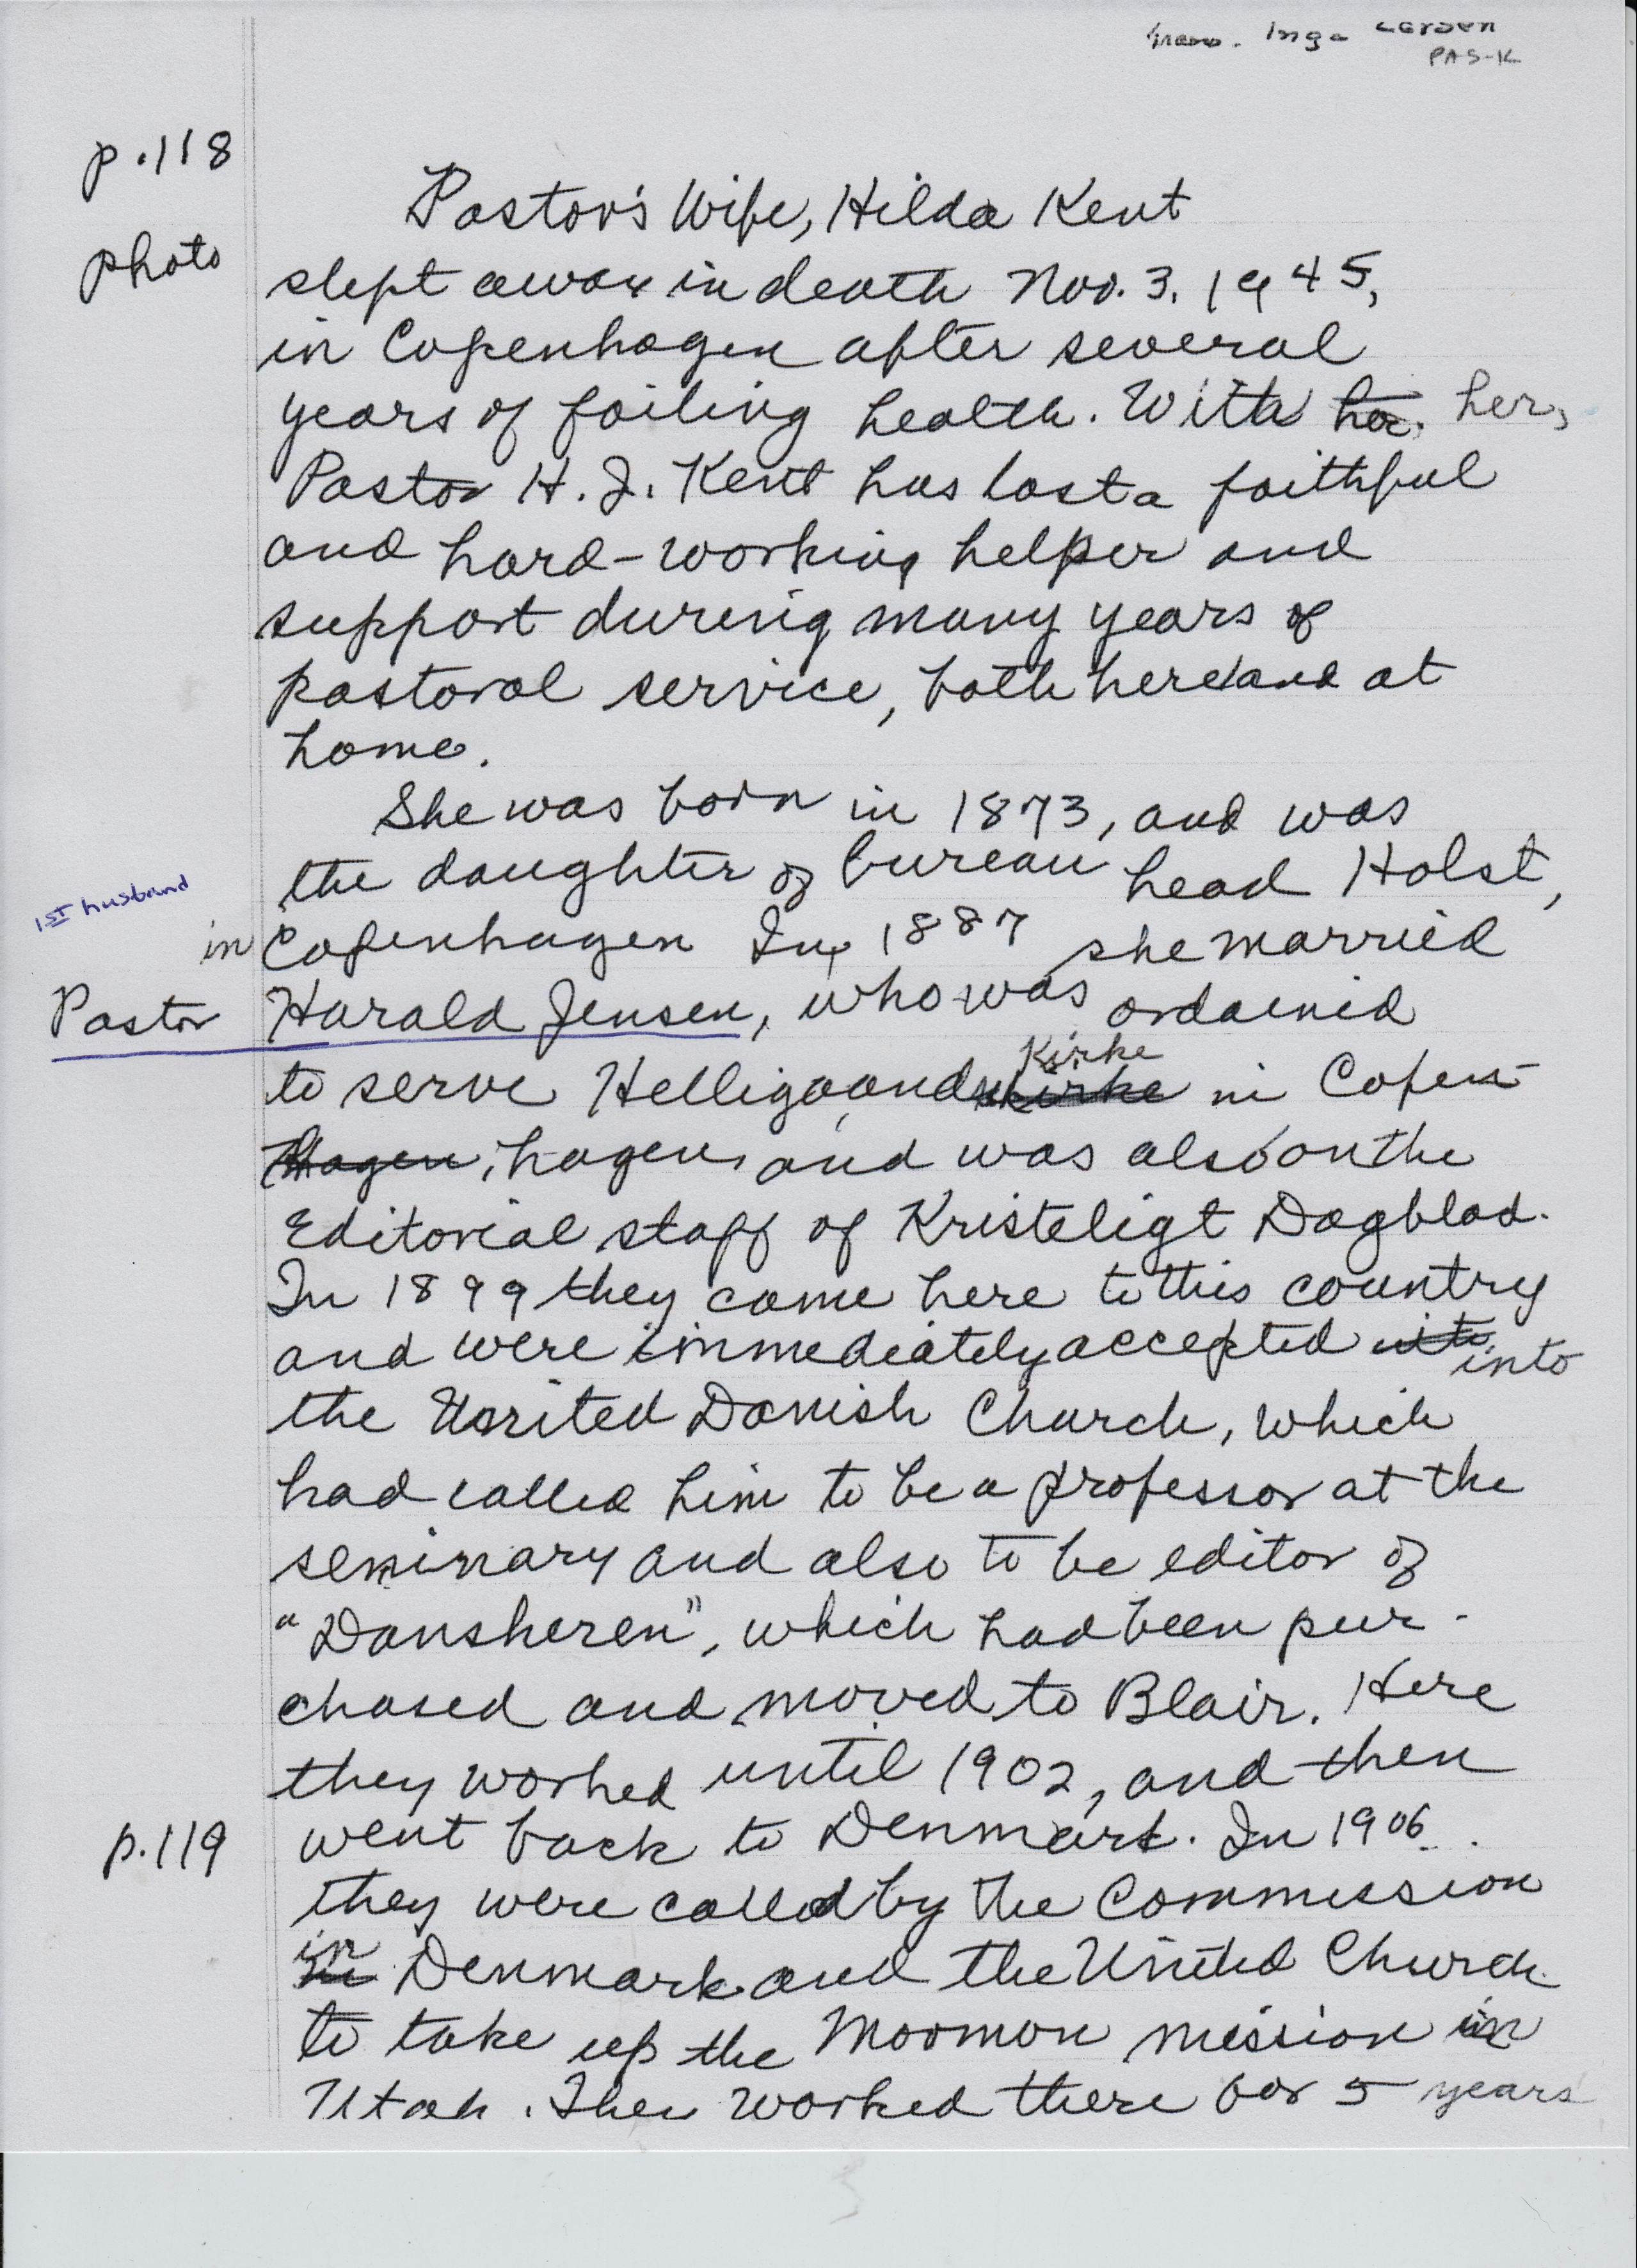 trans. Inga Larsen
PAS-K
p.118
photo
Pastor's Wife, Hilda Kent
slept away in death Nov. 3. 1945,
in Copenhagen after several
years of failing health. With her, her,
Pastor H. J. Kent has lost a faithful
and hard-working helper and
support during many years of
pastoral service, both here and at
home.
She was born in 1873, and was
the daughter of bureau head Holst,
1st husband
in Copenhagen In, 1887 she married
Pastor Harald Jensen, who was ordained
Kirke
to serve Helligaandskirke in Copen-
hagen, hagen, and was also on the
Editorial staff of Kristeligt Dagblad.
In 1899 they came here to this country
and were immediately accepted into into
the United Danish Church, which
had called him to be a professor at the
seminary and also to be editor of
"Danskeren", which had been pur-
chased and moved to Blair. Here
they worked until 1902, and then
p.119
went back to Denmark. In 1906
they were called by the Commission
in
in Denmark and the United Church
to take up the Mormon mission in
Utah. They worked there for 5 years